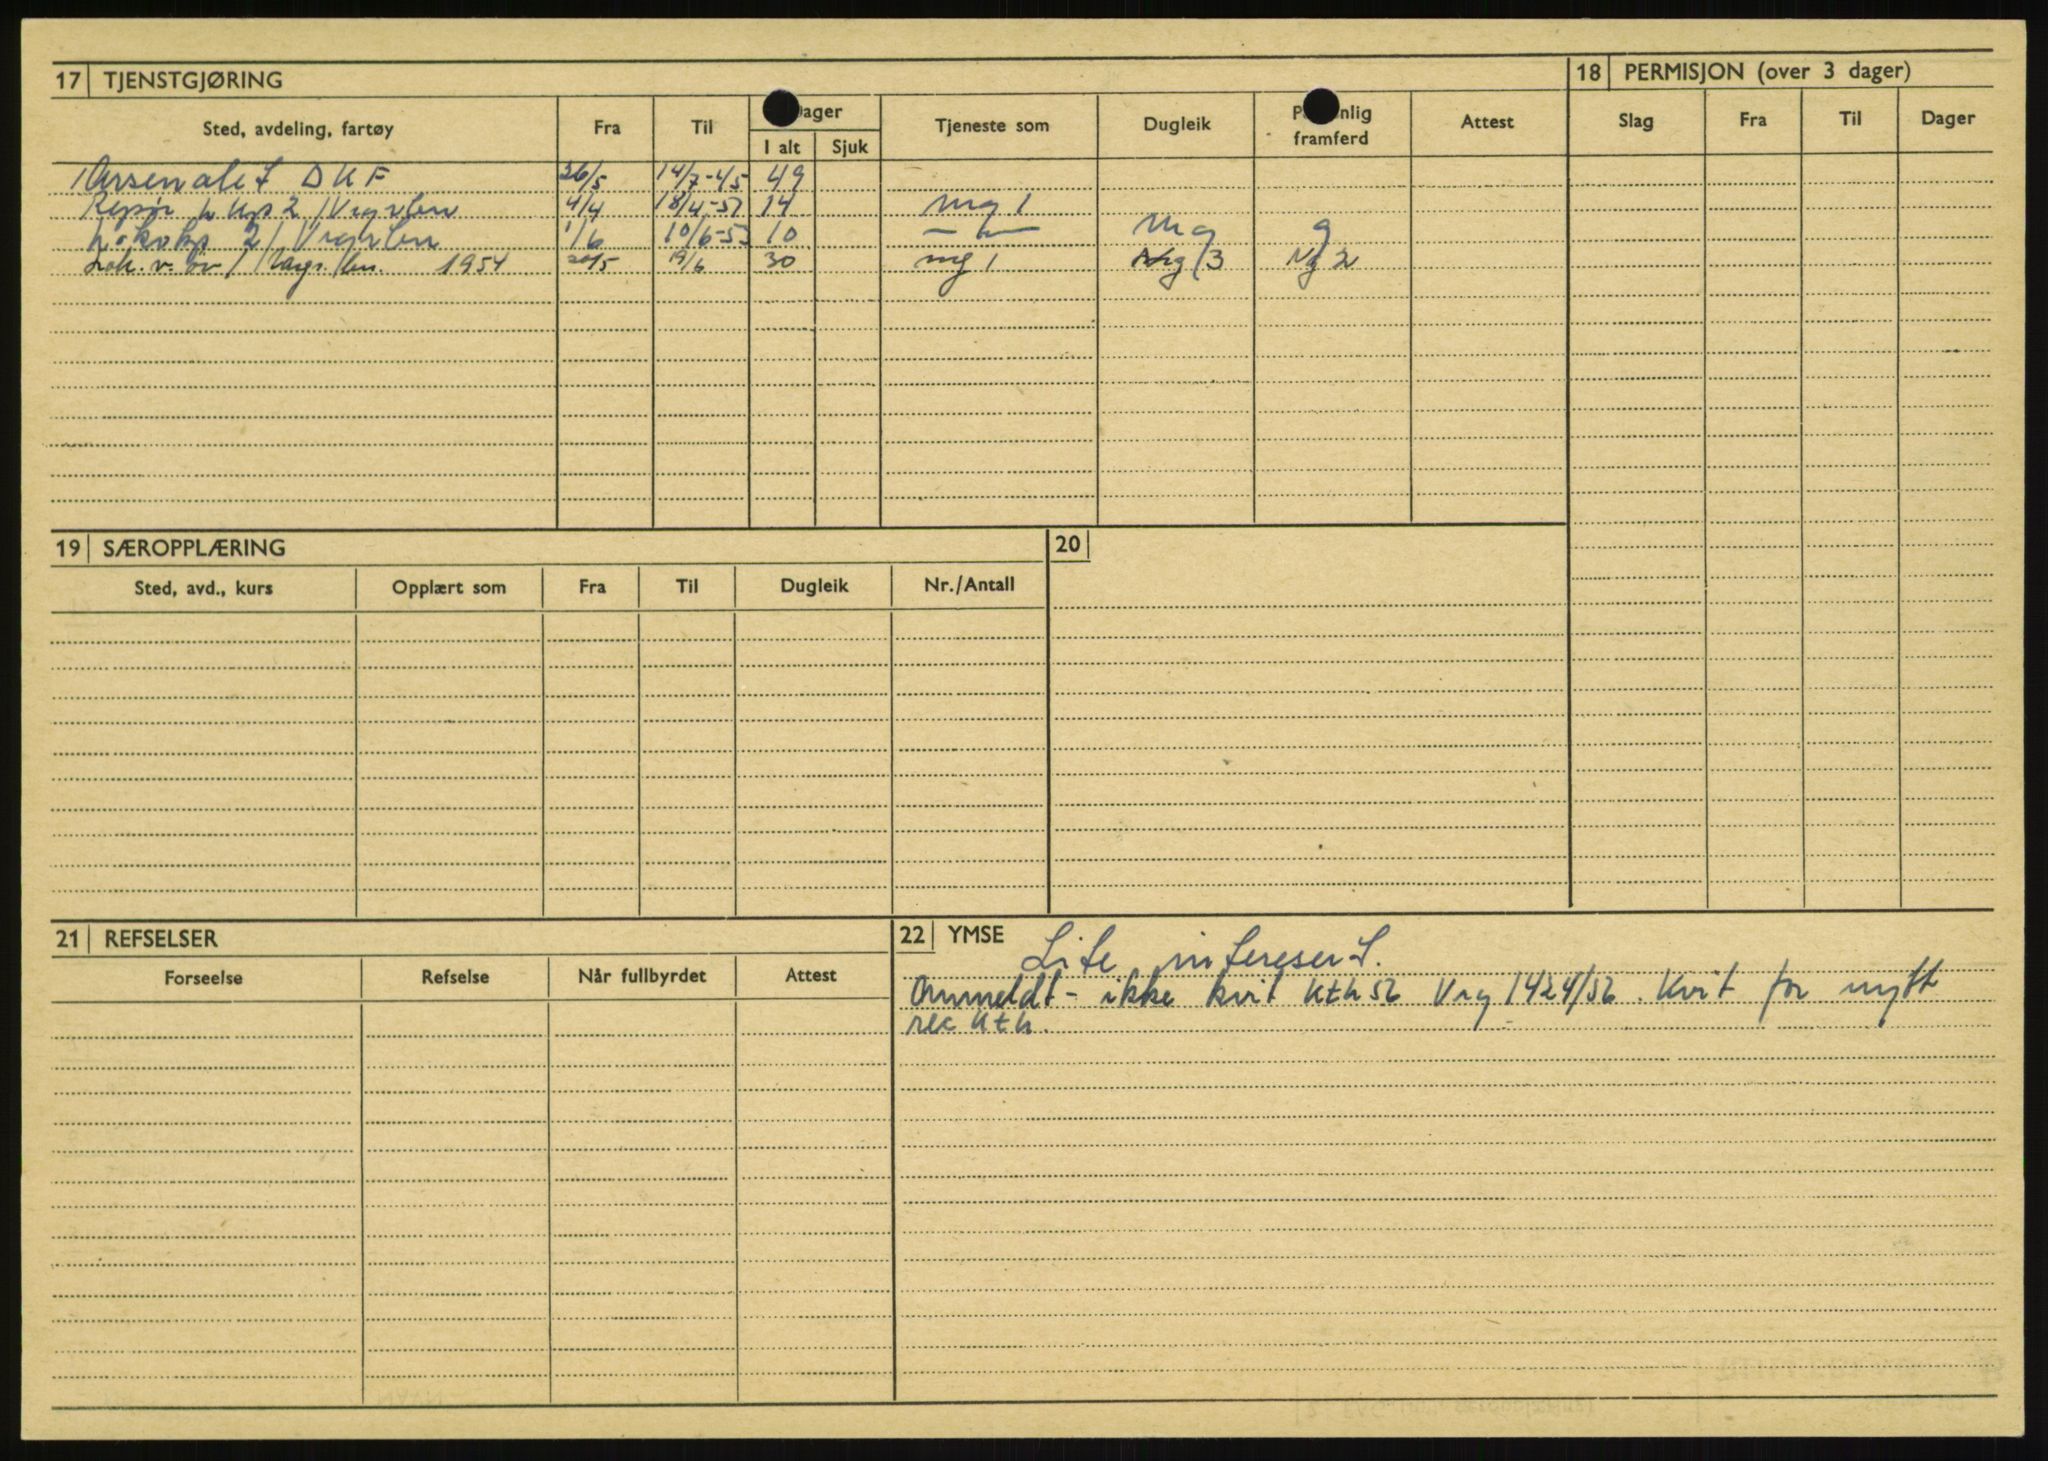 17 TJENSTGJØRING
Sted, avdeling, fartøy Fra Til Dager Tjeneste som Dugleik framferd Attest
I alt Sjuk
Arsenalet DKF 26/5 14/7-45 49
4/4 18/4-52 14 mg 1
1/6 10/6-53 10 — " — Mg g
1954 20/5 19/6 30 mg 1 3 Ng 2
18 PERMISJON (over 3 dager)
Slag Fra Til Dager
19 SÆROPPLÆRING
Sted, avd., kurs Opplært som Fra Til Dugleik Nr./Antall
20
21 REFSELSER
Forseelse Refselse Når fullbyrdet Attest
22 YMSE
Lite interesert.
Anmeldt - ikke kvit Kth 56 Vrg 1424/56. Kvit for nytt
rec Kth.